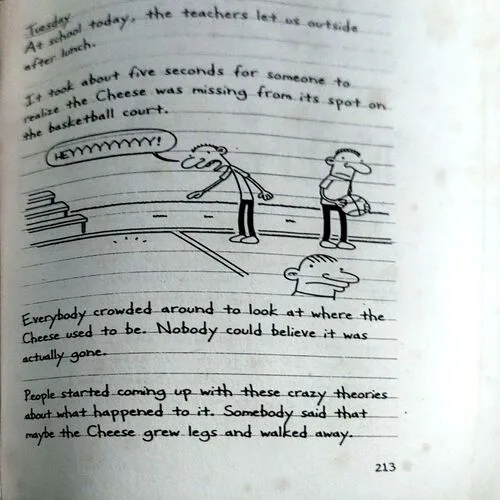 Tuesday
At school today, the teachers let us outside
after lunch.
It took about five seconds for someone to
realize the Cheese was missing from its spot on
the basketball court.
HEYYYYYYYY!
Everybody crowded around to look at where the
Cheese used to be. Nobody could believe it was
actually gone.
People started coming up with these crazy theories
about what happened to it. Somebody said that
maybe the Cheese grew legs and walked away.
213